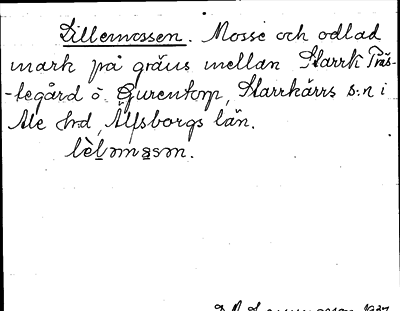 Lillemossen. Mosse och odlad
mark på gräns mellan Starrk. Präs-
-tegård o. Gurentorp, Starrkärrs s:n i
Ale hd, Älfsborgs län.
lèləmåsən.